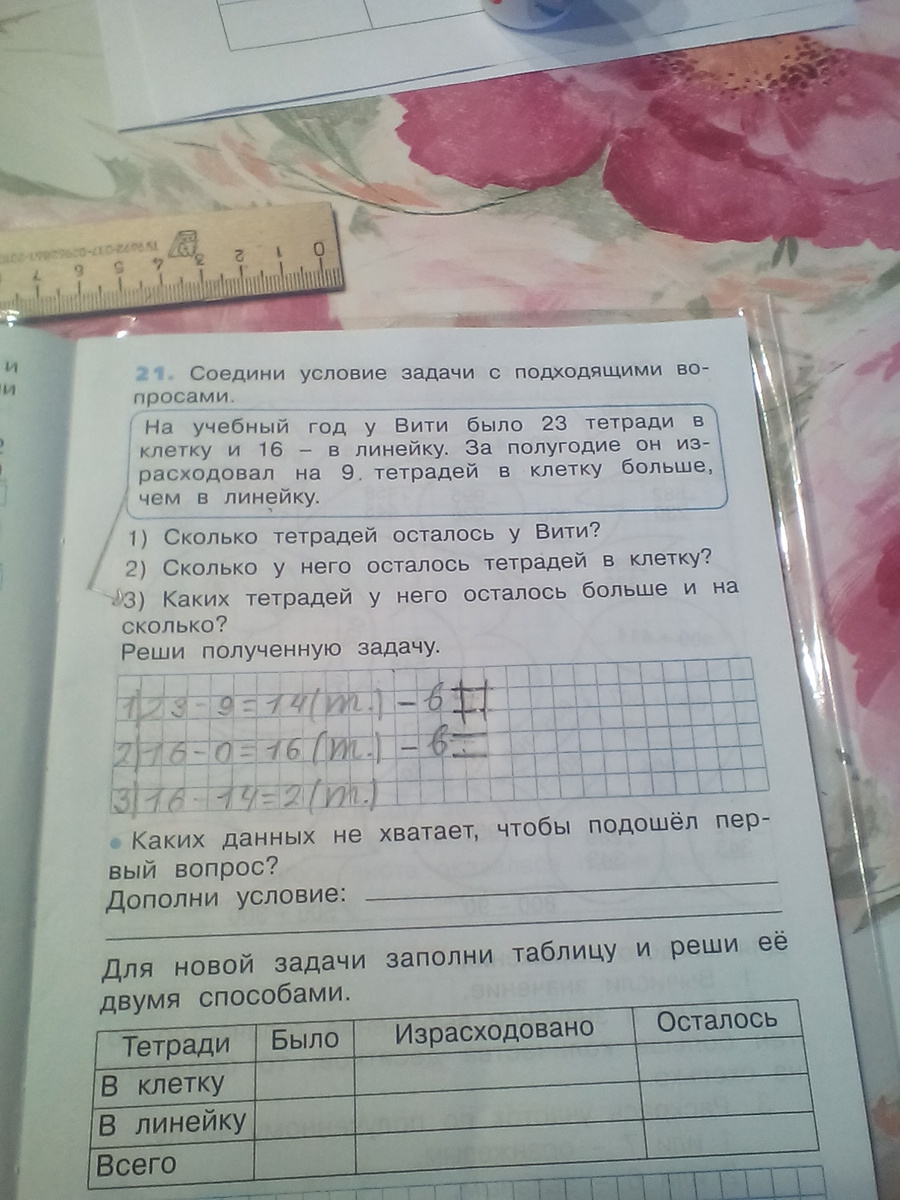 0 1 2 3 4 5 6 7
и
ми
21. Соедини условие задачи с подходящими во-
просами.
На учебный год у Вити было 23 тетради в
клетку и 16 – в линейку. За полугодие он из-
расходовал на 9 тетрадей в клетку больше,
чем в линейку.
1) Сколько тетрадей осталось у Вити?
2) Сколько у него осталось тетрадей в клетку?
3) Каких тетрадей у него осталось больше и на
сколько?
Реши полученную задачу.
1) 23 - 9 = 14 (т.) - в
2) 16 - 0 = 16 (т.) - в
3) 16 - 14 = 2 (т.)
• Каких данных не хватает, чтобы подошёл пер-
вый вопрос?
Дополни условие:
Для новой задачи заполни таблицу и реши её
двумя способами.
Тетради Было Израсходовано Осталось
В клетку
В линейку
Всего